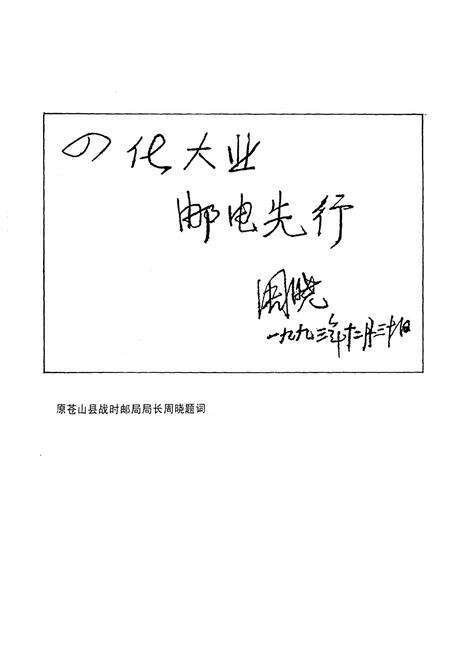 四化大业
邮电先行
周晓
一九九三年十二月三十日
原苍山县战时邮局局长周晓题词